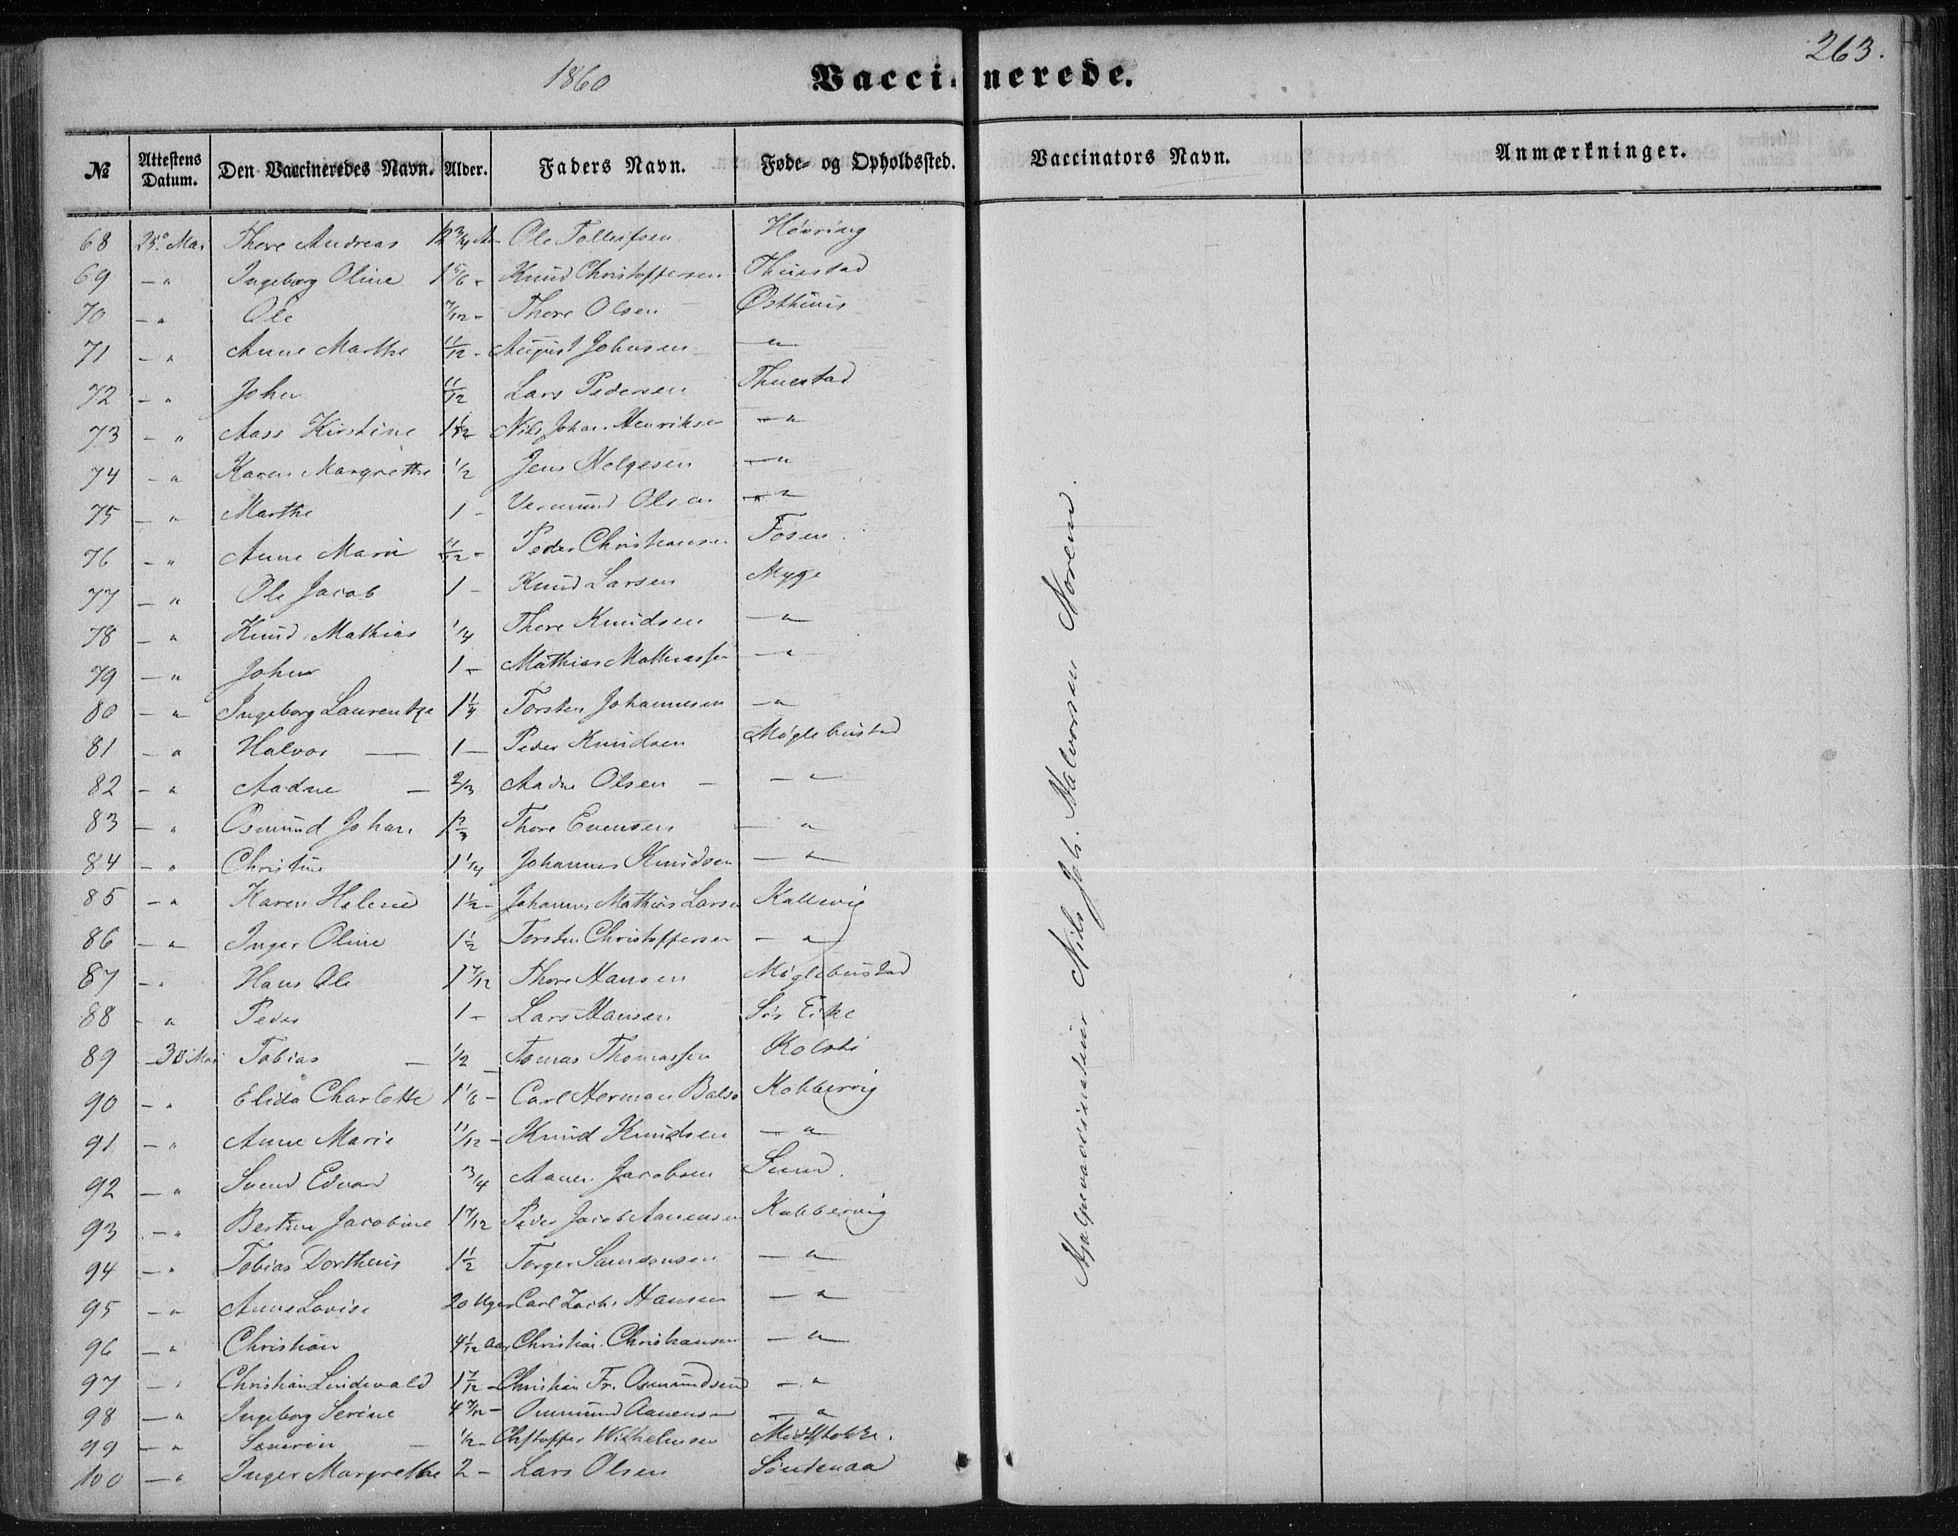 263.
1860
Vaccinerede.
№ Attestens Datum. Den Vaccineredes Navn. Alder. Faders Navn. Føde- og Opholdssted. Vaccinators Navn. Anmærkninger.
68 25. Mai Thore Andreas 12 3/4 Ole Tolleifsen Høvring
69 — " Ingeborg Oline 1 5/6 - Knud Christoffersen Thuestad
70 — " Ole 7/12 - Thore Olsen Østhuus
71 — " Anne Marthe 11/12 - August Johnsen — "
72 — " John 11/12 Lars Pedersen Thuestad
73 — " Aass Kirstine Nils Johan Henriksen — "
74 — " Karen Margrethe 1/2 Jens Helgesen — "
75 — " Marthe 1 - Vermund Olsen — "
76 — " Anne Marie 11/12 - Peder Christiansen Fosen
77 — " Ole Jacob 1 - Knud Larsen Myge
78 — " Knud Mathias 1/4 Thore Knudsen — "
79 — " John 1 - Mathias Mathiassen — "
80 — " Ingeborg Laurentze 1 1/4 Torsten Johannesen — "
81 — " Halvor — 1 — Peder Knudsen Møglebustad
82 — " Aadne — 2/3 Aadne Olsen — — "
83 — " Osmund Johan 1 2/3 Thore Evensen — "
84 — " Christine 1 1/4 Johannes Knudsen — "
85 — " Karen Helene 1 1/2 - Johannes Mathias Larsen Kallevig
86 — " Inger Oline 1 1/2 Torsten Christoffersen — "
87 — " Hans Ole 1 7/12 Thore Hansen Møglebustad
88 - " Peder 1 - Lars Hansen Sør Eike
89 — 30 Mai Tobias — 1/2 Tomas Thomassen Kolstø
90 — " Elida Charlotte 1 1/6 - Carl Herman Kobbervig
91 — " Anne Marie 11/12 - Knud Knudsen — "
92 — " Svend Edvard 3/4 Aanen Jacobsen Sund.
93 — " Bertine Jacobine 1 7/12 Peder Jacob Aanensen Kobbervig
94 — " Tobias Dortheus 1 1/2 Torger Samsonsen — "
95 — " Anne Lovise 20 Uger Carl Hansen — "
96 — " Christian 4 1/12 Aar Christian Christiansen — "
97 — " Christian Lindevald 1 7/12 - Christian Fr. Osmundsen — "
98 — " Ingeborg Serine 4 7/12 - Ommund Aanensen — "
99 — " Severin — 1/2 - Wilhelmsen
100 — " Inger Margrethe 2 - Lars Olsen Søndenaa
Hjælpevaccinateur Nils Joh. Halvorsen Norem.